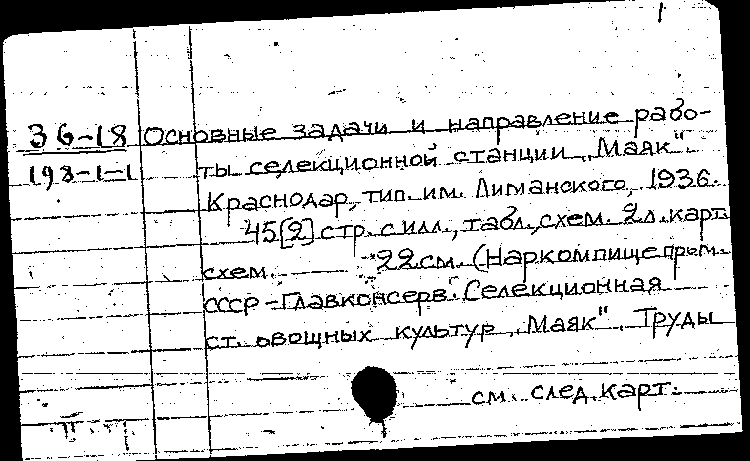 1
36-18 Основные задачи и направление рабо-
198-1-1 ты селекционной станции „Маяк".
Краснодар, тип. им. Лиманского, 1936.
45[2] стр. с илл., табл., схем. 2 л. карт.
схем. 22 см. (Наркомпищепром
СССР - Главконсерв. Селекционная
ст. овощных культур „Маяк". Труды
см. след. карт.